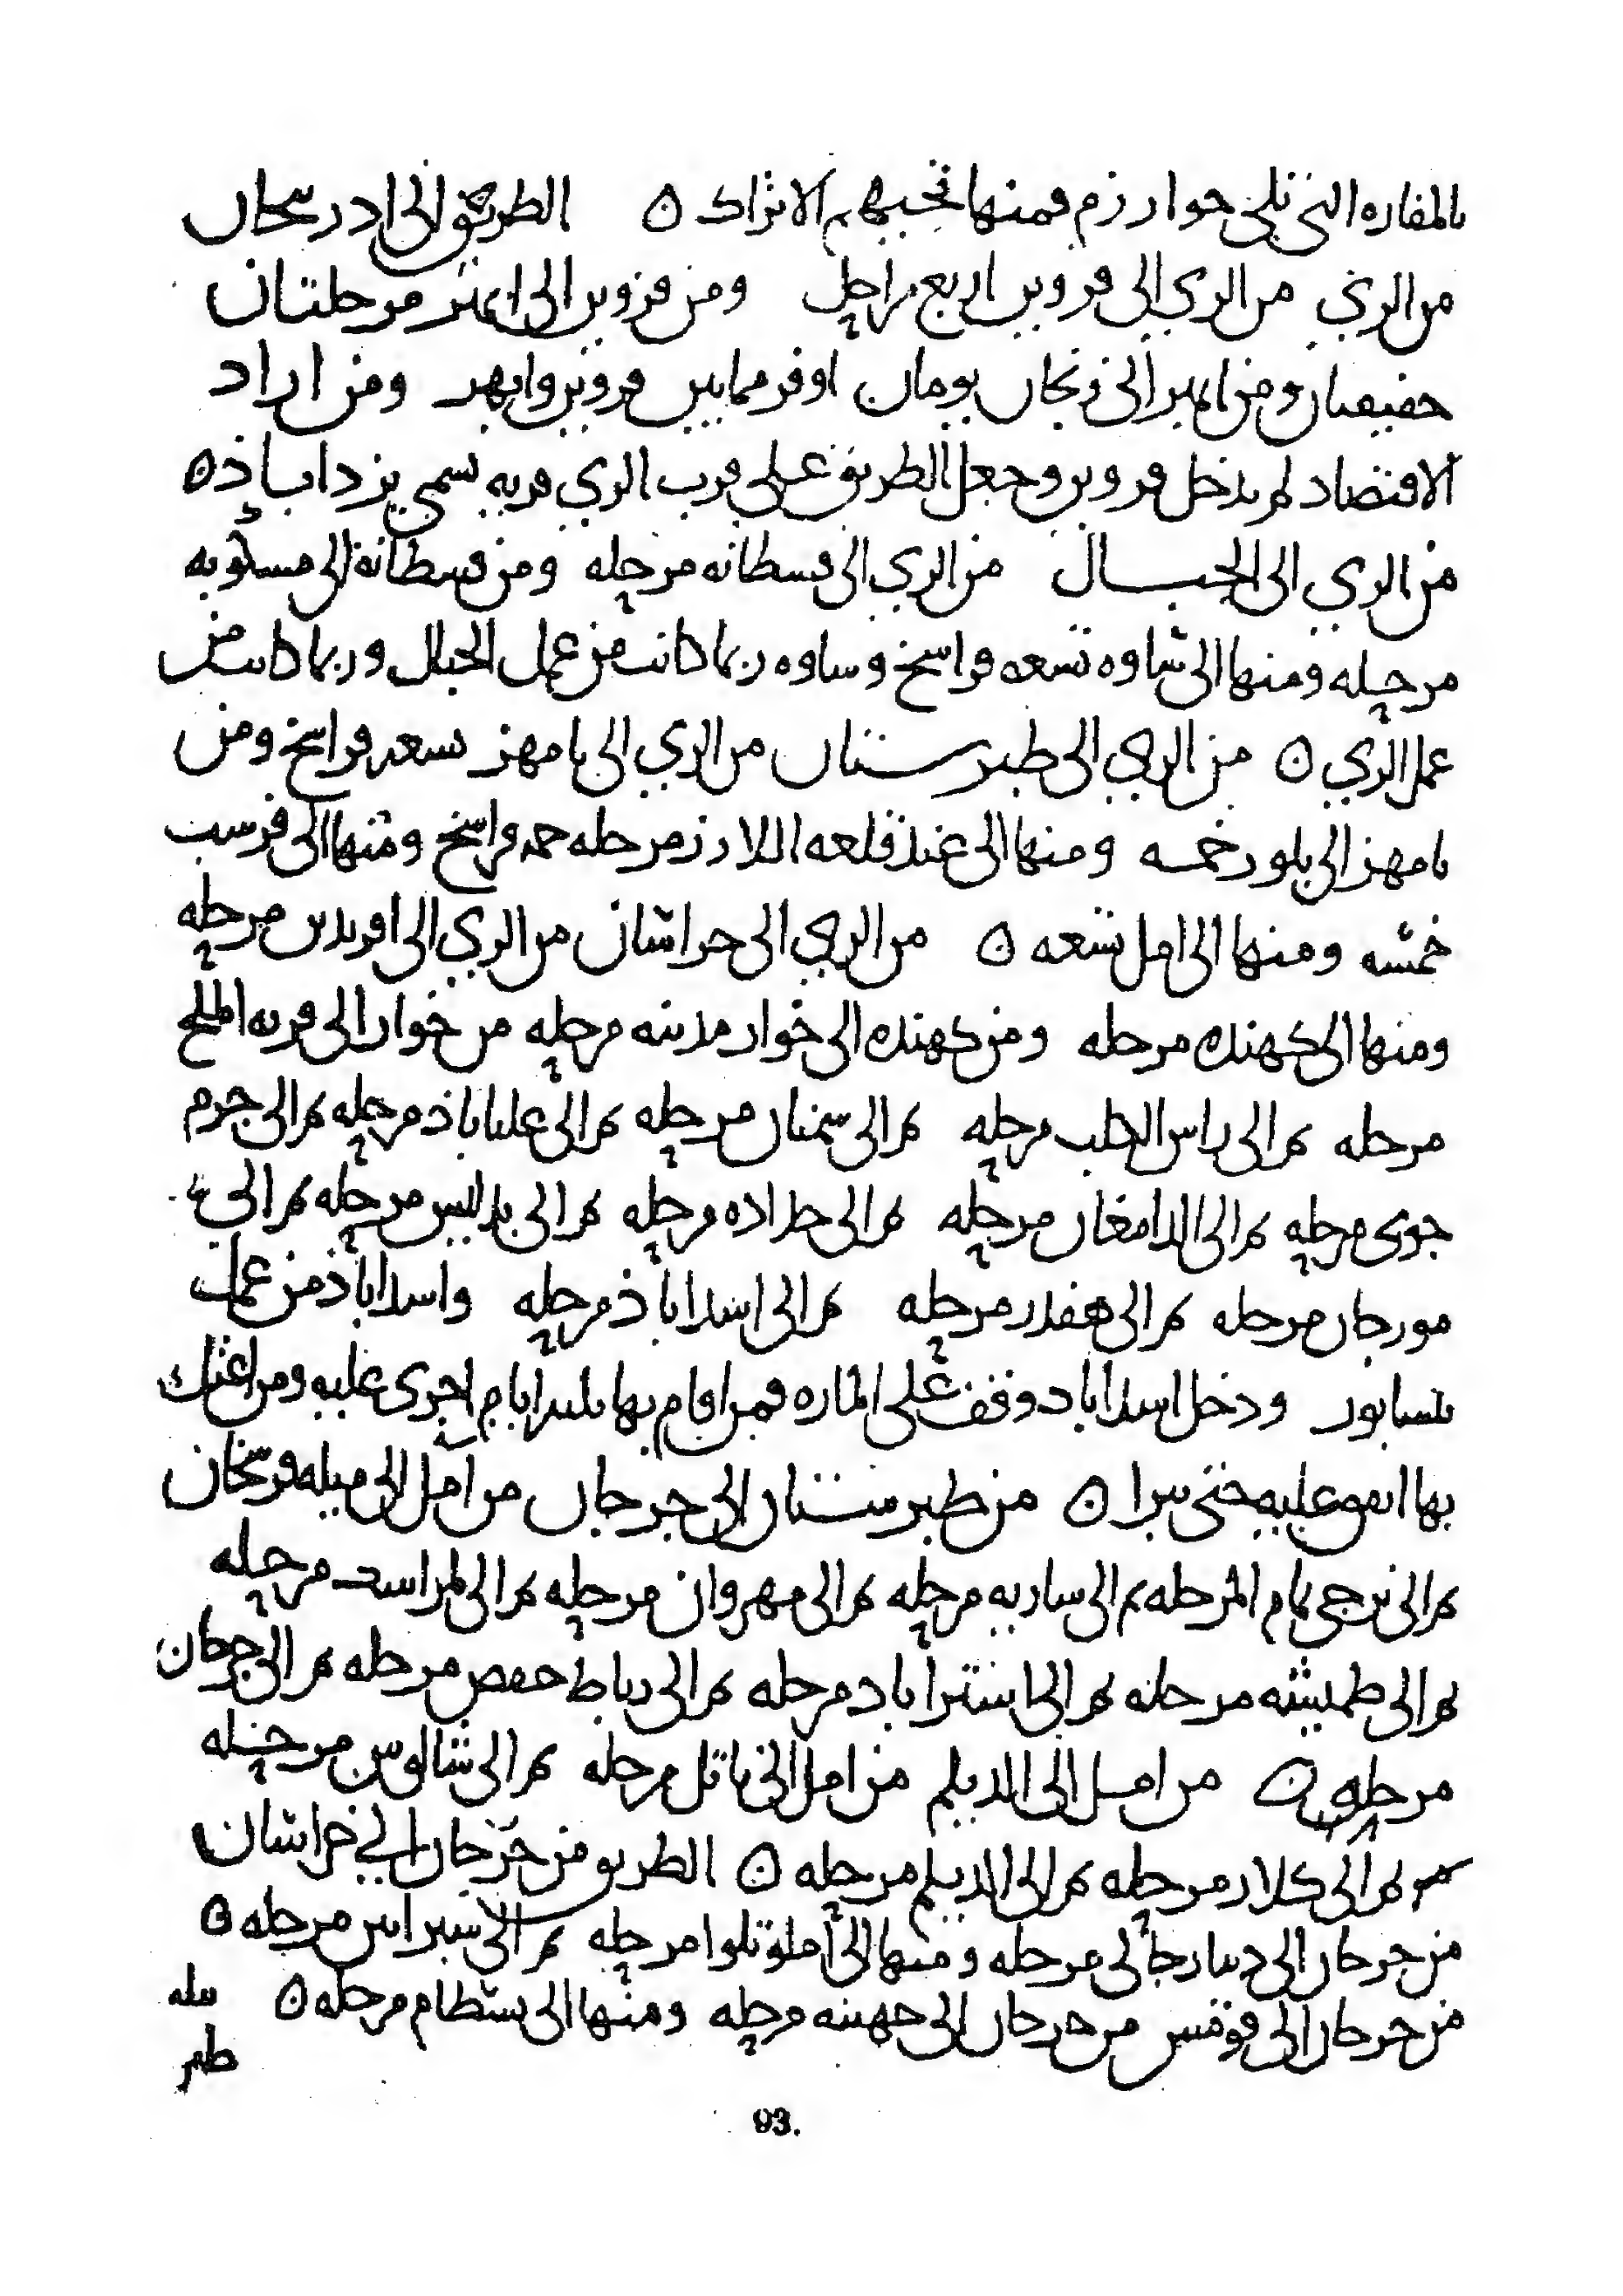 بالمفازه التي تلي خوارزم فمنها تجيهم الاتراك ٥ الطريق الى ادربيجان
من الري من الري الى قزوين اربع مراحل ومن قزوين الى ابهر مرحلتان
خفيفتان ومن ابهر الى زنجان يومان اوفر مما بين قزوين وابهر ومن اراد
الاقتصاد لم يدخل قزوين وجعل الطريق على قرب الري قريه تسمى يزداباذ ٥
من الري الى الجبال من الري الى قسطانه مرحله ومن قسطانة الى مسكويه
مرحله ومنها الى ساوه تسعه فراسخ وساوه ربما كانت من عمل الجبال وربما كانت من
عمل الري ٥ من الري الى طبرستان من الري الى بامهز تسعه فراسخ ومن
بامهز الى بلور خمسه ومنها الى عند قلعه اللارز مرحله خمسه فراسخ ومنها الى فرسب
خمسه ومنها الى امل تسعه ٥ من الري الى خراسان من الري الى افريدين مرحله
ومنها الى كهنده مرحله ومن كهنده الى خوار مدينه مرحله من خوار الى قريه الملح
مرحله ثم الى راس الكلب مرحله ثم الى سمنان مرحله ثم الى علياباذ مرحله ثم الى جرم
جوى مرحله ثم الى الدامغان مرحله ثم الى حداده مرحله ثم الى بدليس مرحله ثم الى
مورجان مرحله ثم الى هفدر مرحله ثم الى اسداباذ مرحله واسداباذ من عمل
نيسابور ودخل اسداباد وقف على الماره فمن اقام بها ثلثه ايام اجرى عليه ومن اعتل
بها انفق عليه حتى يبرا ٥ من طبرستان الى جرجان من آمل الى ميله فرسخان
ثم الى ترجى تمام المرحله ثم الى ساريه مرحله ثم الى مهروان مرحله ثم الى لمراسك مرحله
ثم الى طميشه مرحله ثم الى استراباد مرحله ثم الى رباط حفص مرحله ثم الى جرجان
مرحله ٥ من امل الى الديلم من امل الى ناتل مرحله ثم الى شالوس مرحله
ثم الى كلار مرحله ثم الى الديلم مرحله ٥ الطريق من جرجان الى خراسان
من جرجان الى دينارجالى مرحله ومنها الى املوتلوا مرحله ثم الى اسبراين مرحله ٥
من جرجان الى قومس من جرجان الى جهينه مرحله ومنها الى بسطام مرحله ٥
93.